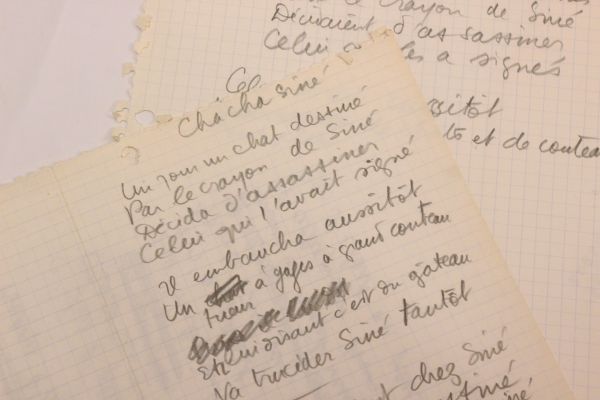 le crayon de Siné
Décidèrent d'assassiner
Celui les a signés
ssitôt
et de couteau
Cha cha siné
Un jour un chat destiné
Par le crayon de Siné
Décida d'assassiner
Celui qui l'avait signé
Il embaucha aussitôt
Un à gages à grand couteau
tueur
Et lui disant c'est du gâteau
Va trucider Siné tantôt
chez Siné